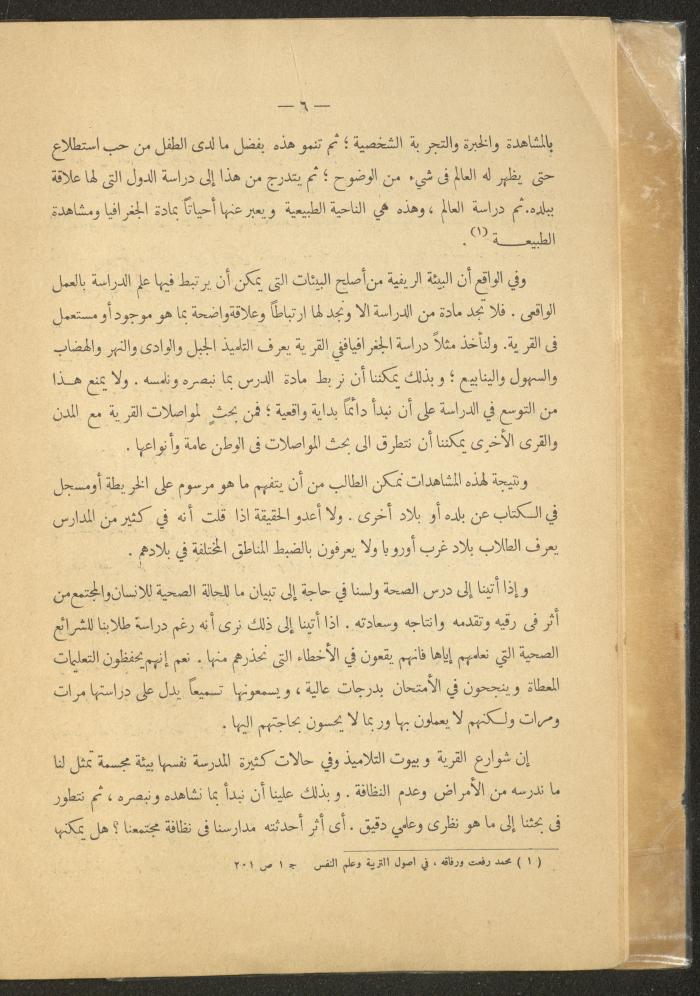 — ٦ —
بالمشاهدة والخبرة والتجربة الشخصية ؛ ثم تنمو هذه بفضل ما لدى الطفل من حب استطلاع
حتى يظهر له العالم فى شيء من الوضوح ؛ ثم يتدرج من هذا إلى دراسة الدول التى لها علاقة
ببلده. ثم دراسة العالم ، وهذه هي الناحية الطبيعية ويعبر عنها أحياناً بمادة الجغرافيا ومشاهدة
الطبيعــــة (١) .
وفي الواقع أن البيئة الريفية من أصلح البيئات التى يمكن أن يرتبط فيها علم الدراسة بالعمل
الواقعى . فلا تجد مادة من الدراسة الا ونجد لها ارتباطاً وعلاقة واضحة بما هو موجود أو مستعمل
فى القرية. ولنأخذ مثلاً دراسة الجغرافيا ففي القرية يعرف التلميذ الجبل والوادى والنهر والهضاب
والسهول والينابيع ؛ وبذلك يمكننا أن نربط مادة الدرس بما نبصره ونلمسه . ولا يمنع هــذا
من التوسع في الدراسة على أن نبدأ دائماً بداية واقعية ؛ فمن بحثٍ لمواصلات القرية مع المدن
والقرى الأخرى يمكننا أن نتطرق الى بحث المواصلات فى الوطن عامة وأنواعها .
ونتيجة لهذه المشاهدات نمكن الطالب من أن يتفهم ما هو مرسوم على الخريطة أو مسجل
في الكتاب عن بلده أو بلاد أخرى . ولا أعدو الحقيقة اذا قلت أنه في كثير من المدارس
يعرف الطلاب بلاد غرب أوروبا ولا يعرفون بالضبط المناطق المختلفة في بلادهم .
وإذا أتينا إلى درس الصحة ولسنا في حاجة إلى تبيان ما للحالة الصحية للانسان والمجتمع من
أثر فى رقيه وتقدمه وانتاجه وسعادته . اذا أتينا إلى ذلك نرى أنه رغم دراسة طلابنا للشرائع
الصحية التي نعلمهم إياها فانهم يقعون في الأخطاء التى نحذرهم منها . نعم إنهم يحفظون التعليمات
المعطاة وينجحون في الأمتحان بدرجات عالية ، ويسمعونها تسميعاً يدل على دراستها مرات
ومرات ولكنهم لا يعملون بها وربما لا يحسون بحاجتهم اليها .
إن شوارع القرية وبيوت التلاميذ وفي حالات كثيرة المدرسة نفسها بيئة مجسمة تمثل لنا
ما ندرسه من الأمراض وعدم النظافة . وبذلك علينا أن نبدأ بما نشاهده ونبصره ، ثم نتطور
فى بحثنا إلى ما هو نظرى وعلمي دقيق . أى أثر أحدثته مدارسنا فى نظافة مجتمعنا ؟ هل يمكنها
( ١ ) محمد رفعت ورفاقه ، في اصول التربية وعلم النفس ج ١ ص ٢٠١